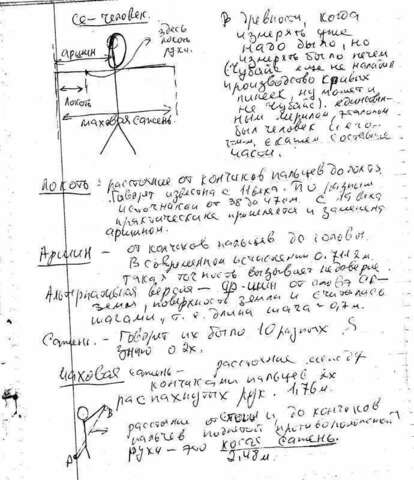 Се-человек.
здесь
локоть
руки.
аршин
локоть
маховая сажень
В древности, когда
измерять уже
надо было, но
измерять было нечем
(Чубайс ещё не наладил
производство кривых
линеек, ну может и
не Чубайс). единствен-
ным мерилом, эталоном
был человек и его-
скажем составные
части.
Локоть: расстояние от кончиков пальцев до локтя.
Говорят известна с 11 века. По разным
источникам от 38 до 47 см. с века
практически и заменяет
аршином.
Аршин - от кончиков пальцев до головы.
В современном исчислении 0.7112м.
Такая точность вызывает недоверие
Альтернативная версия - ар-шин от слова ар-
земля, поверхность земли и считалась
шагами, т.е. длина шага ~ 0,7м.
Сажень. - Говорят их было 10 разных. Я
знаю о 2х.
Маховая сажень - расстояние между
кончиками пальцев 2х
распахнутых рук. 1,76м.
В
А
расстояние от стопы и до кончиков
пальцев поднятой противоположной
руки - это косая сажень.
2,48м.